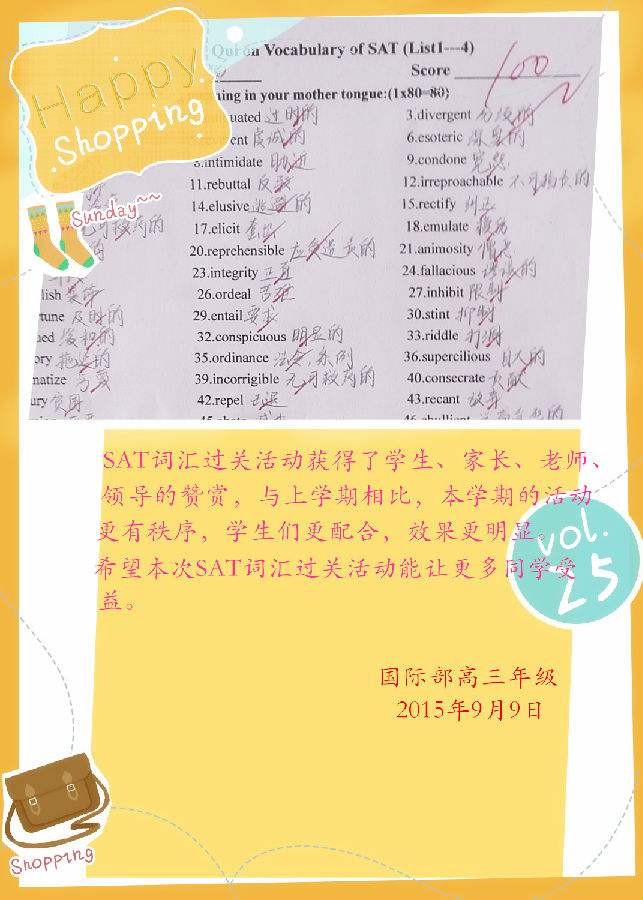 Happy
Shopping
Sunday~~
on Vocabulary of SAT (List1---4)
Score 100
ing in your mother tongue:(1x80=80)
uated 过时的
3.divergent 分歧的
ent 虔诚的
6.esoteric 深奥的
8.intimidate 胁迫
9.condone 宽恕
11.rebuttal 反驳
12.irreproachable 不可指责的
14.elusive 逃避的
15.rectify 纠正
17.elicit
18.emulate
20.reprehensible 应受遣责的
21.animosity
lish 装饰
23.integrity 正直
24.fallacious 谬误的
tune 及时的
26.ordeal 苦难
27.inhibit 限制
ned 缓和的
29.entail 要求
30.stint 抑制
ory 拖延的
32.conspicuous 明显的
33.riddle
matize
35.ordinance 法令,条例
36.supercilious 自大的
ury
39.incorrigible 无可救药的
40.consecrate 贡献
42.repel 击退
43.recant 放弃
SAT词汇过关活动获得了学生、家长、老师、
领导的赞赏，与上学期相比，本学期的活动
更有秩序，学生们更配合，效果更明显。
希望本次SAT词汇过关活动能让更多同学受
益。
vol.
25
国际部高三年级
2015年9月9日
Shopping